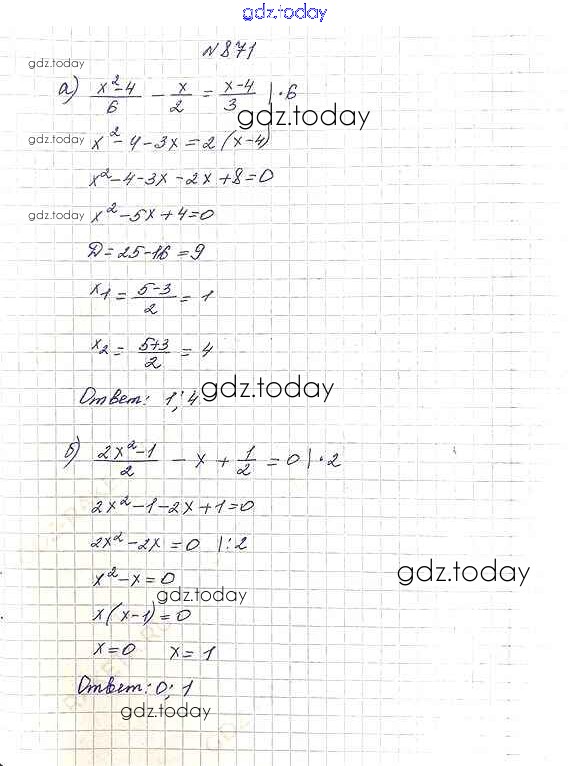 gdz.today
№871
gdz.today
а) (x²-4)/6 - x/2 = (x-4)/3 |·6
gdz.today
gdz.today x²-4-3x=2(x-4)
x²-4-3x-2x+8=0
gdz.today x²-5x+4=0
D=25-16=9
x₁ = (5-3)/2 = 1
x₂ = (5+3)/2 = 4
gdz.today
Ответ: 1; 4
б) (2x²-1)/2 - x + 1/2 = 0 |·2
2x²-1-2x+1=0
2x²-2x=0 |:2
gdz.today
x²-x=0
gdz.today
x(x-1)=0
x=0 x=1
Ответ: 0; 1
gdz.today